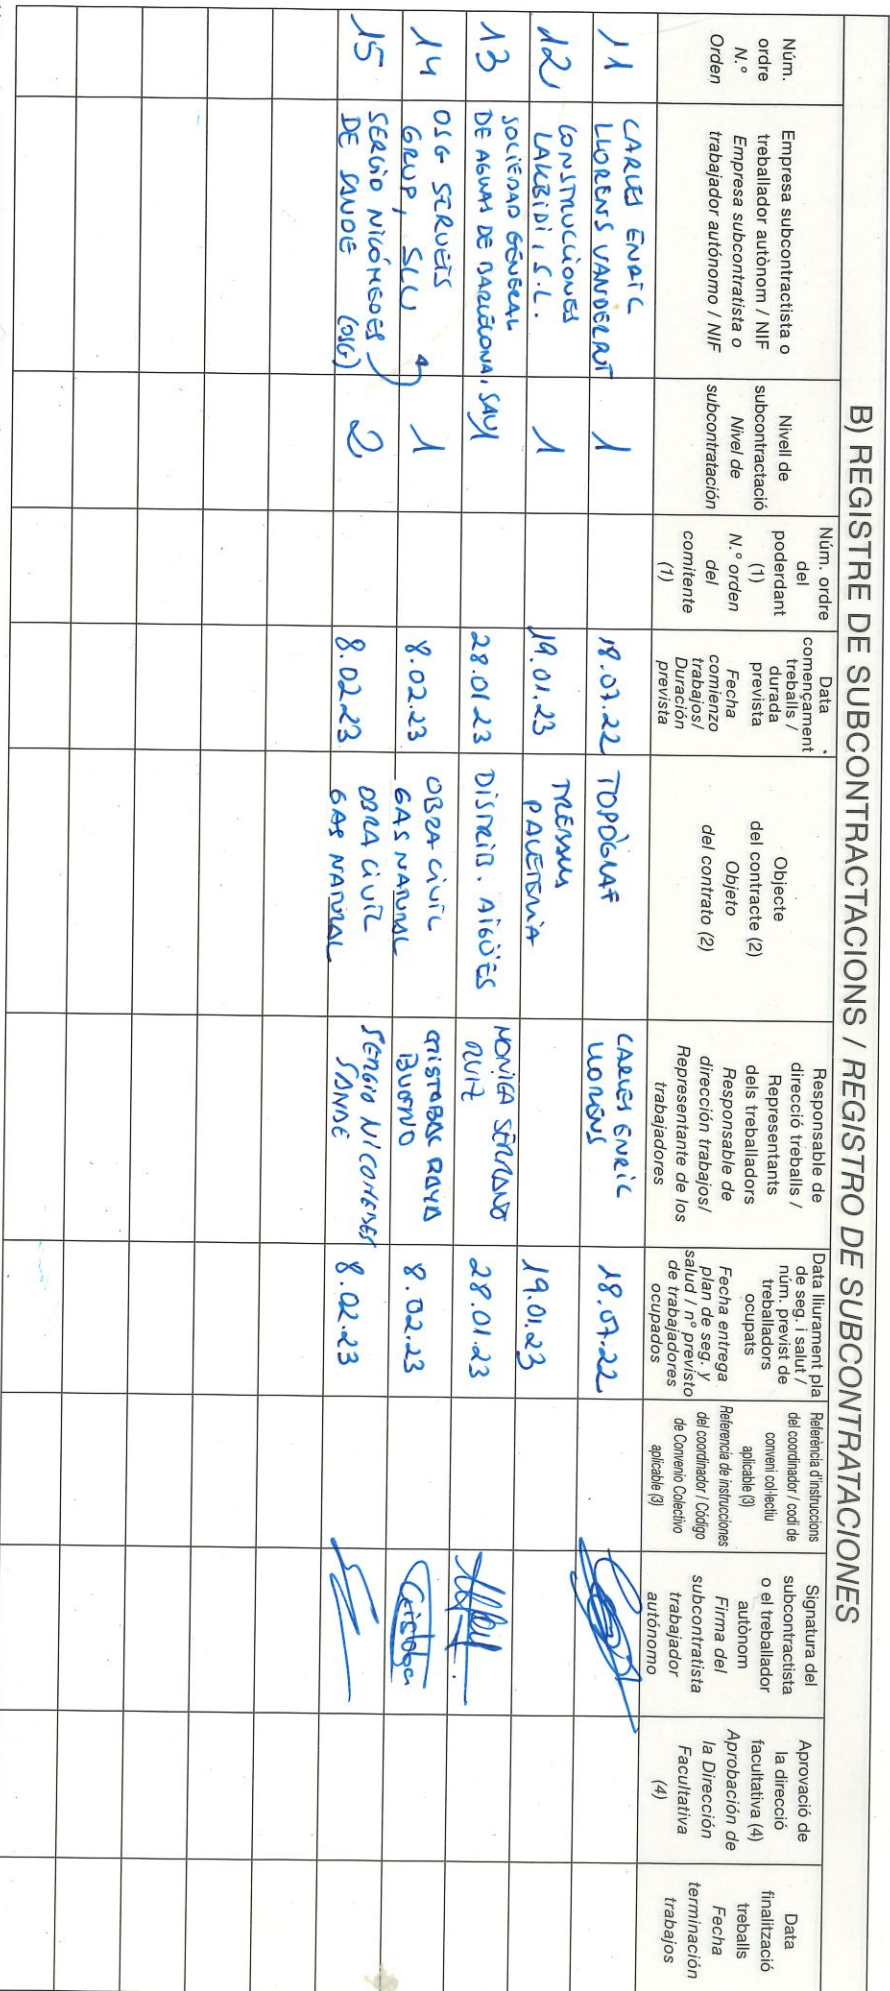 B) REGISTRE DE SUBCONTRACTACIONS / REGISTRO DE SUBCONTRATACIONES
Núm.
ordre
N.º
Orden
Empresa subcontractista o
treballador autònom / NIF
Empresa subcontratista o
trabajador autónomo / NIF
Nivell de
subcontractació
Nivel de
subcontratación
Núm. ordre
del
poderdant
(1)
N.º orden
del
comitente
(1)
Data
començament
treballs /
durada
prevista
Fecha
comienzo
trabajos/
Duración
prevista
Objecte
del contracte (2)
Objeto
del contrato (2)
Responsable de
direcció treballs /
Representants
dels treballadors
Responsable de
dirección trabajos/
Representante de los
trabajadores
Data lliurament pla
de seg. i salut /
núm. previst de
treballadors
ocupats
Fecha entrega
plan de seg. y
salud / nº previsto
de trabajadores
ocupados
Referència d'instruccions
del coordinador / codi de
conveni col·lectiu
aplicable (3)
Referencia de instrucciones
del coordinador / Código
de Convenio Colectivo
aplicable (3)
Signatura del
subcontractista
o el treballador
autònom
Firma del
subcontratista
trabajador
autónomo
Aprovació de
la direcció
facultativa (4)
Aprobación de
la Dirección
Facultativa
(4)
Data
finalització
treballs
Fecha
terminación
trabajos
11
CARLES ENRIC
LLORENS VANDERPUT
1
18.07.22
TOPÒGRAF
CARLES ENRIC
LLORENS
18.07.22
12
CONSTRUCCIONES
LAKBIDI, S.L.
1
19.01.23
PALETERIA
19.01.23
13
SOCIEDAD GENERAL
DE AGUAS DE BARCELONA, SAU
1
28.01.23
DISTRIB. AIGÜES
MONICA SERRANO
RUIZ
28.01.23
14
OSG SERVEIS
GRUP, SLU
1
8.02.23
OBRA CIVIL
GAS NATURAL
CRISTOBAL RAYA
BUENO
8.02.23
Cristobal
15
SERGIO NICOMEDES
DE SANDE (OSG)
2
8.02.23
OBRA CIVIL
GAS NATURAL
SERGIO NICOMEDES
SANDE
8.02.23